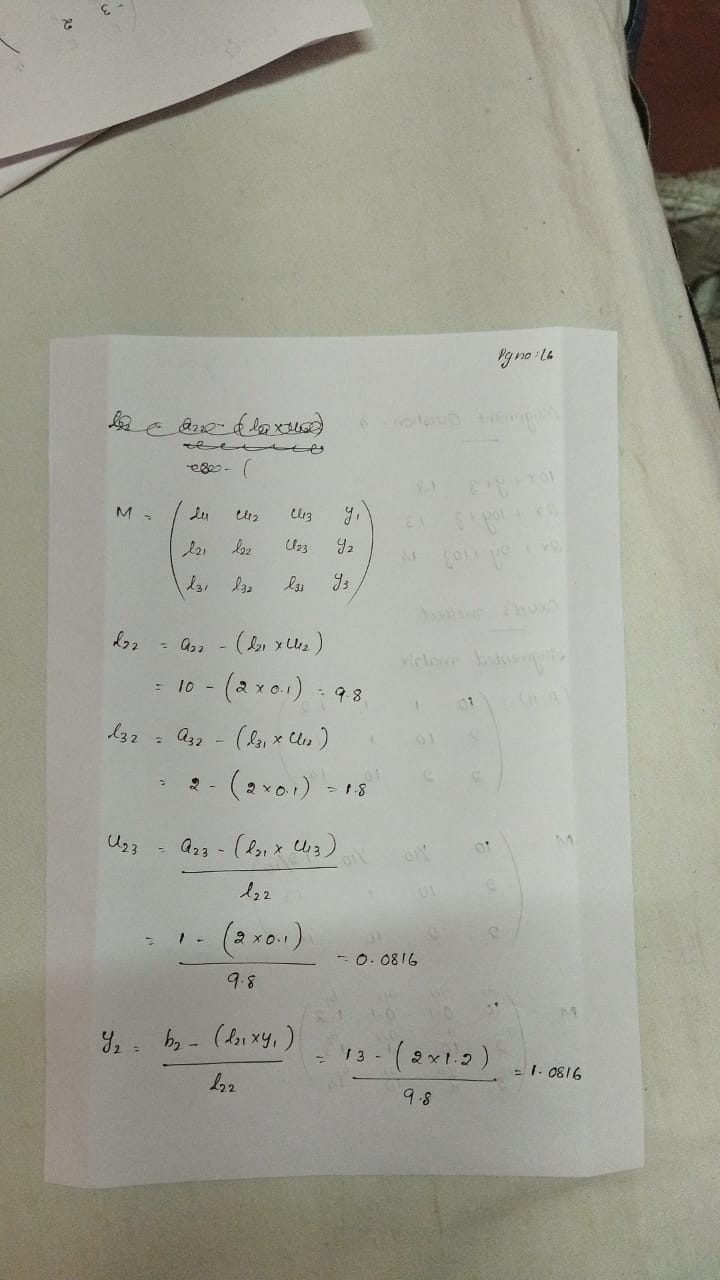 -3
2
Pg no: 16
M = ( l11 u12 u13 y1
l21 l22 u23 y2
l31 l32 l33 y3 )
l22 = a22 - (l21 x u12)
= 10 - (2 x 0.1) = 9.8
l32 = a32 - (l31 x u12)
= 2 - (2 x 0.1) = 1.8
u23 = a23 - (l21 x u13)
l22
= 1 - (2 x 0.1) = 0.0816
9.8
y2 = b2 - (l21 x y1) = 13 - (2 x 1.2) = 1.0816
l22 9.8